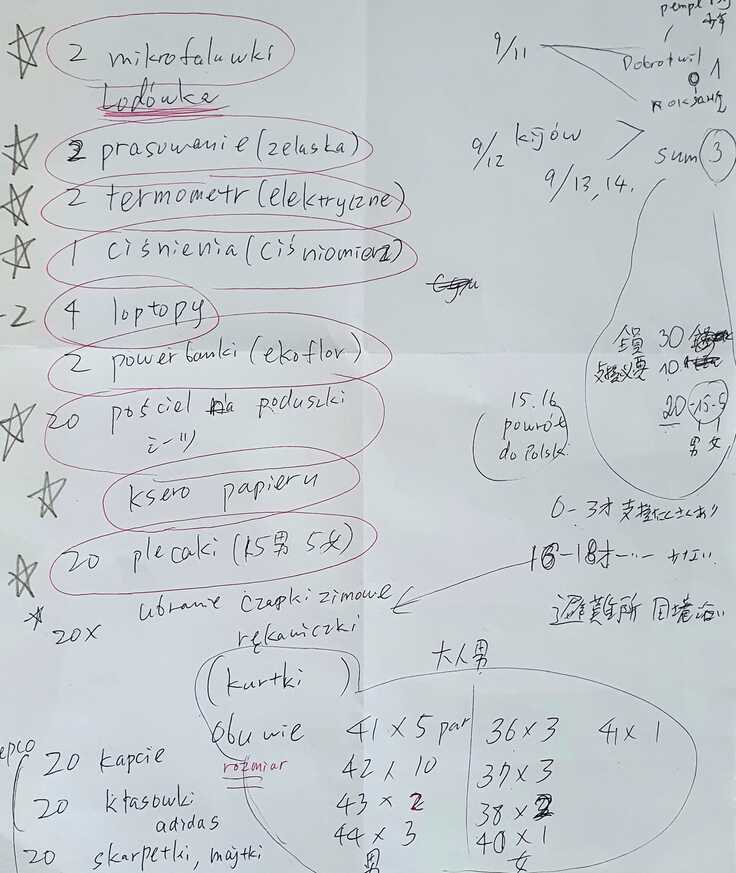 2 mikrofaluwki
Lodówka
2 prasowanie (zelaska)
2 termometr (elektryczne)
1 ciśnienia (ciśniomierz)
-2 4 loptopy
2 powerbanki (ekoflor)
20 pościel na poduszki
シーツ
ksero papieru
20 plecaki (15男 5女)
ubranie czapki zimowe
20x rękawiczki
(kurtki)
obuwie
rozmiar
epco
20 kapcie
20 klasowki
adidas
20 skarpetki, majtki
大人男
41 x 5 par
42 x 10
43 x 2
44 x 3
男
36 x 3
41 x 1
37 x 3
38 x 2
40 x 1
女
9/11
Dobrotwil
1
9/12 kijów
9/13, 14.
sum 3
全員 30
10
20 -15-5
男女
15.16
powrót
do Polski
0-3才 支援たくさんあり
16-18才…ない
避難所 国境沿い